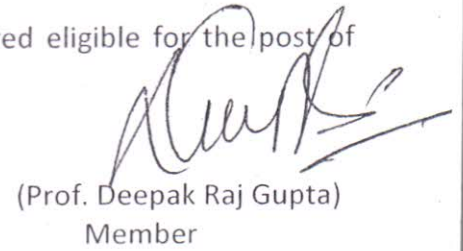 ed eligible for the post of
(Prof. Deepak Raj Gupta)
Member